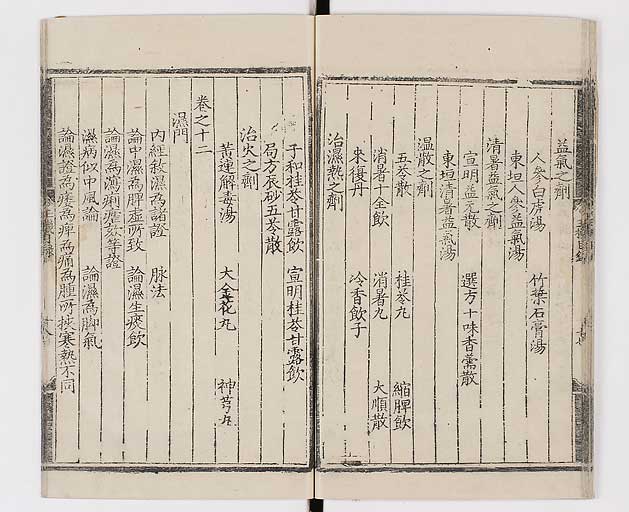 益氣之劑
人參白虎湯 竹葉石膏湯
東垣人參益氣湯
清暑益氣之劑
宣明益元散 選方十味香薷散
東垣清暑益氣湯
溫散之劑
五苓散 桂苓丸 縮脾飲
消暑十全飲 消暑丸 大順散
來復丹 冷香飲子
治濕熱之劑
子和桂苓甘露飲 宣明桂苓甘露飲
局方辰砂五苓散
治火之劑
黃連解毒湯 大金花丸 神芎丸
卷之十二
濕門
內經敘濕為諸證 脉法
論中濕為脾虛所致 論濕生痰飲
論濕為瀉痢瘧
等證
濕病似中風論 論濕為脚氣
論濕證為痿為痺為痛為腫所挾寒熱不同